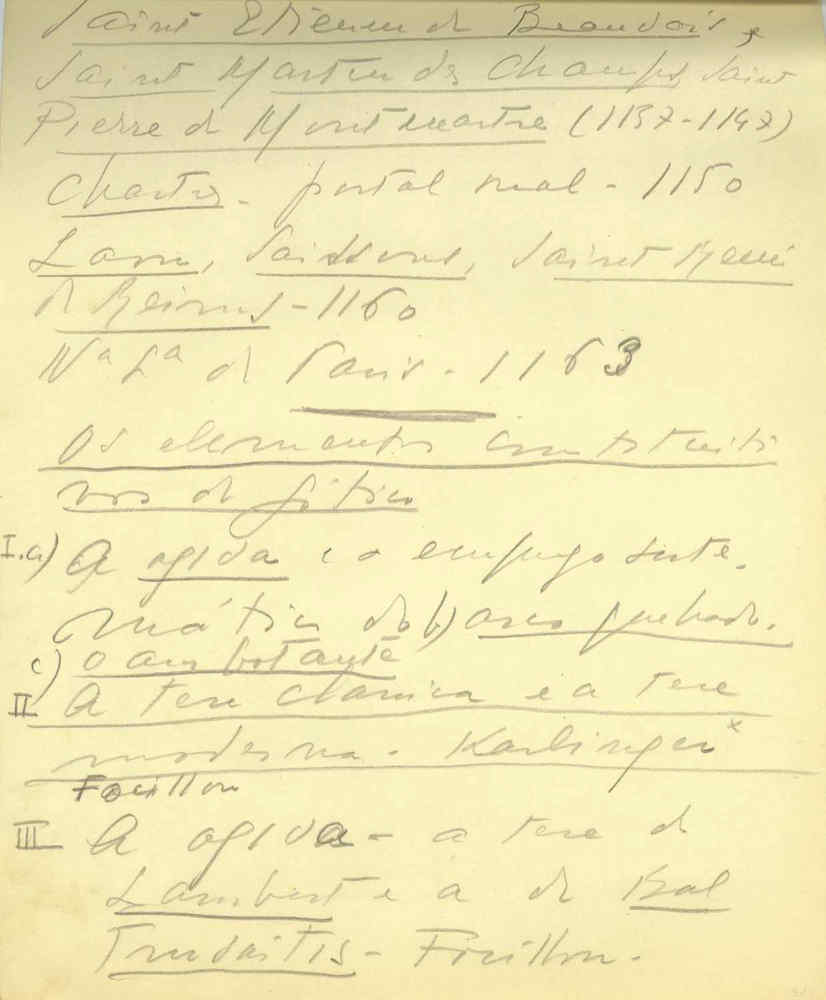 Saint Etienne de Beauvais,
Saint Martin des Champs, Saint
Pierre de Montmartre (1137-1147)
Chartres - portal real - 1150
Laon, Soissons, Saint Remi
de Reims - 1160
Nª Sª de Paris - 1163
Os elementos constituti
vos do gótico
I. a) A ogiva e o emprego siste-
mático do b) arco quebrado.
c) o arcobotante
II A tese clássica e a tese
moderna. Karlinger x
Focillon
III A ogiva - a tese de
Lambert e a de Bal
trusaitis - Focillon.